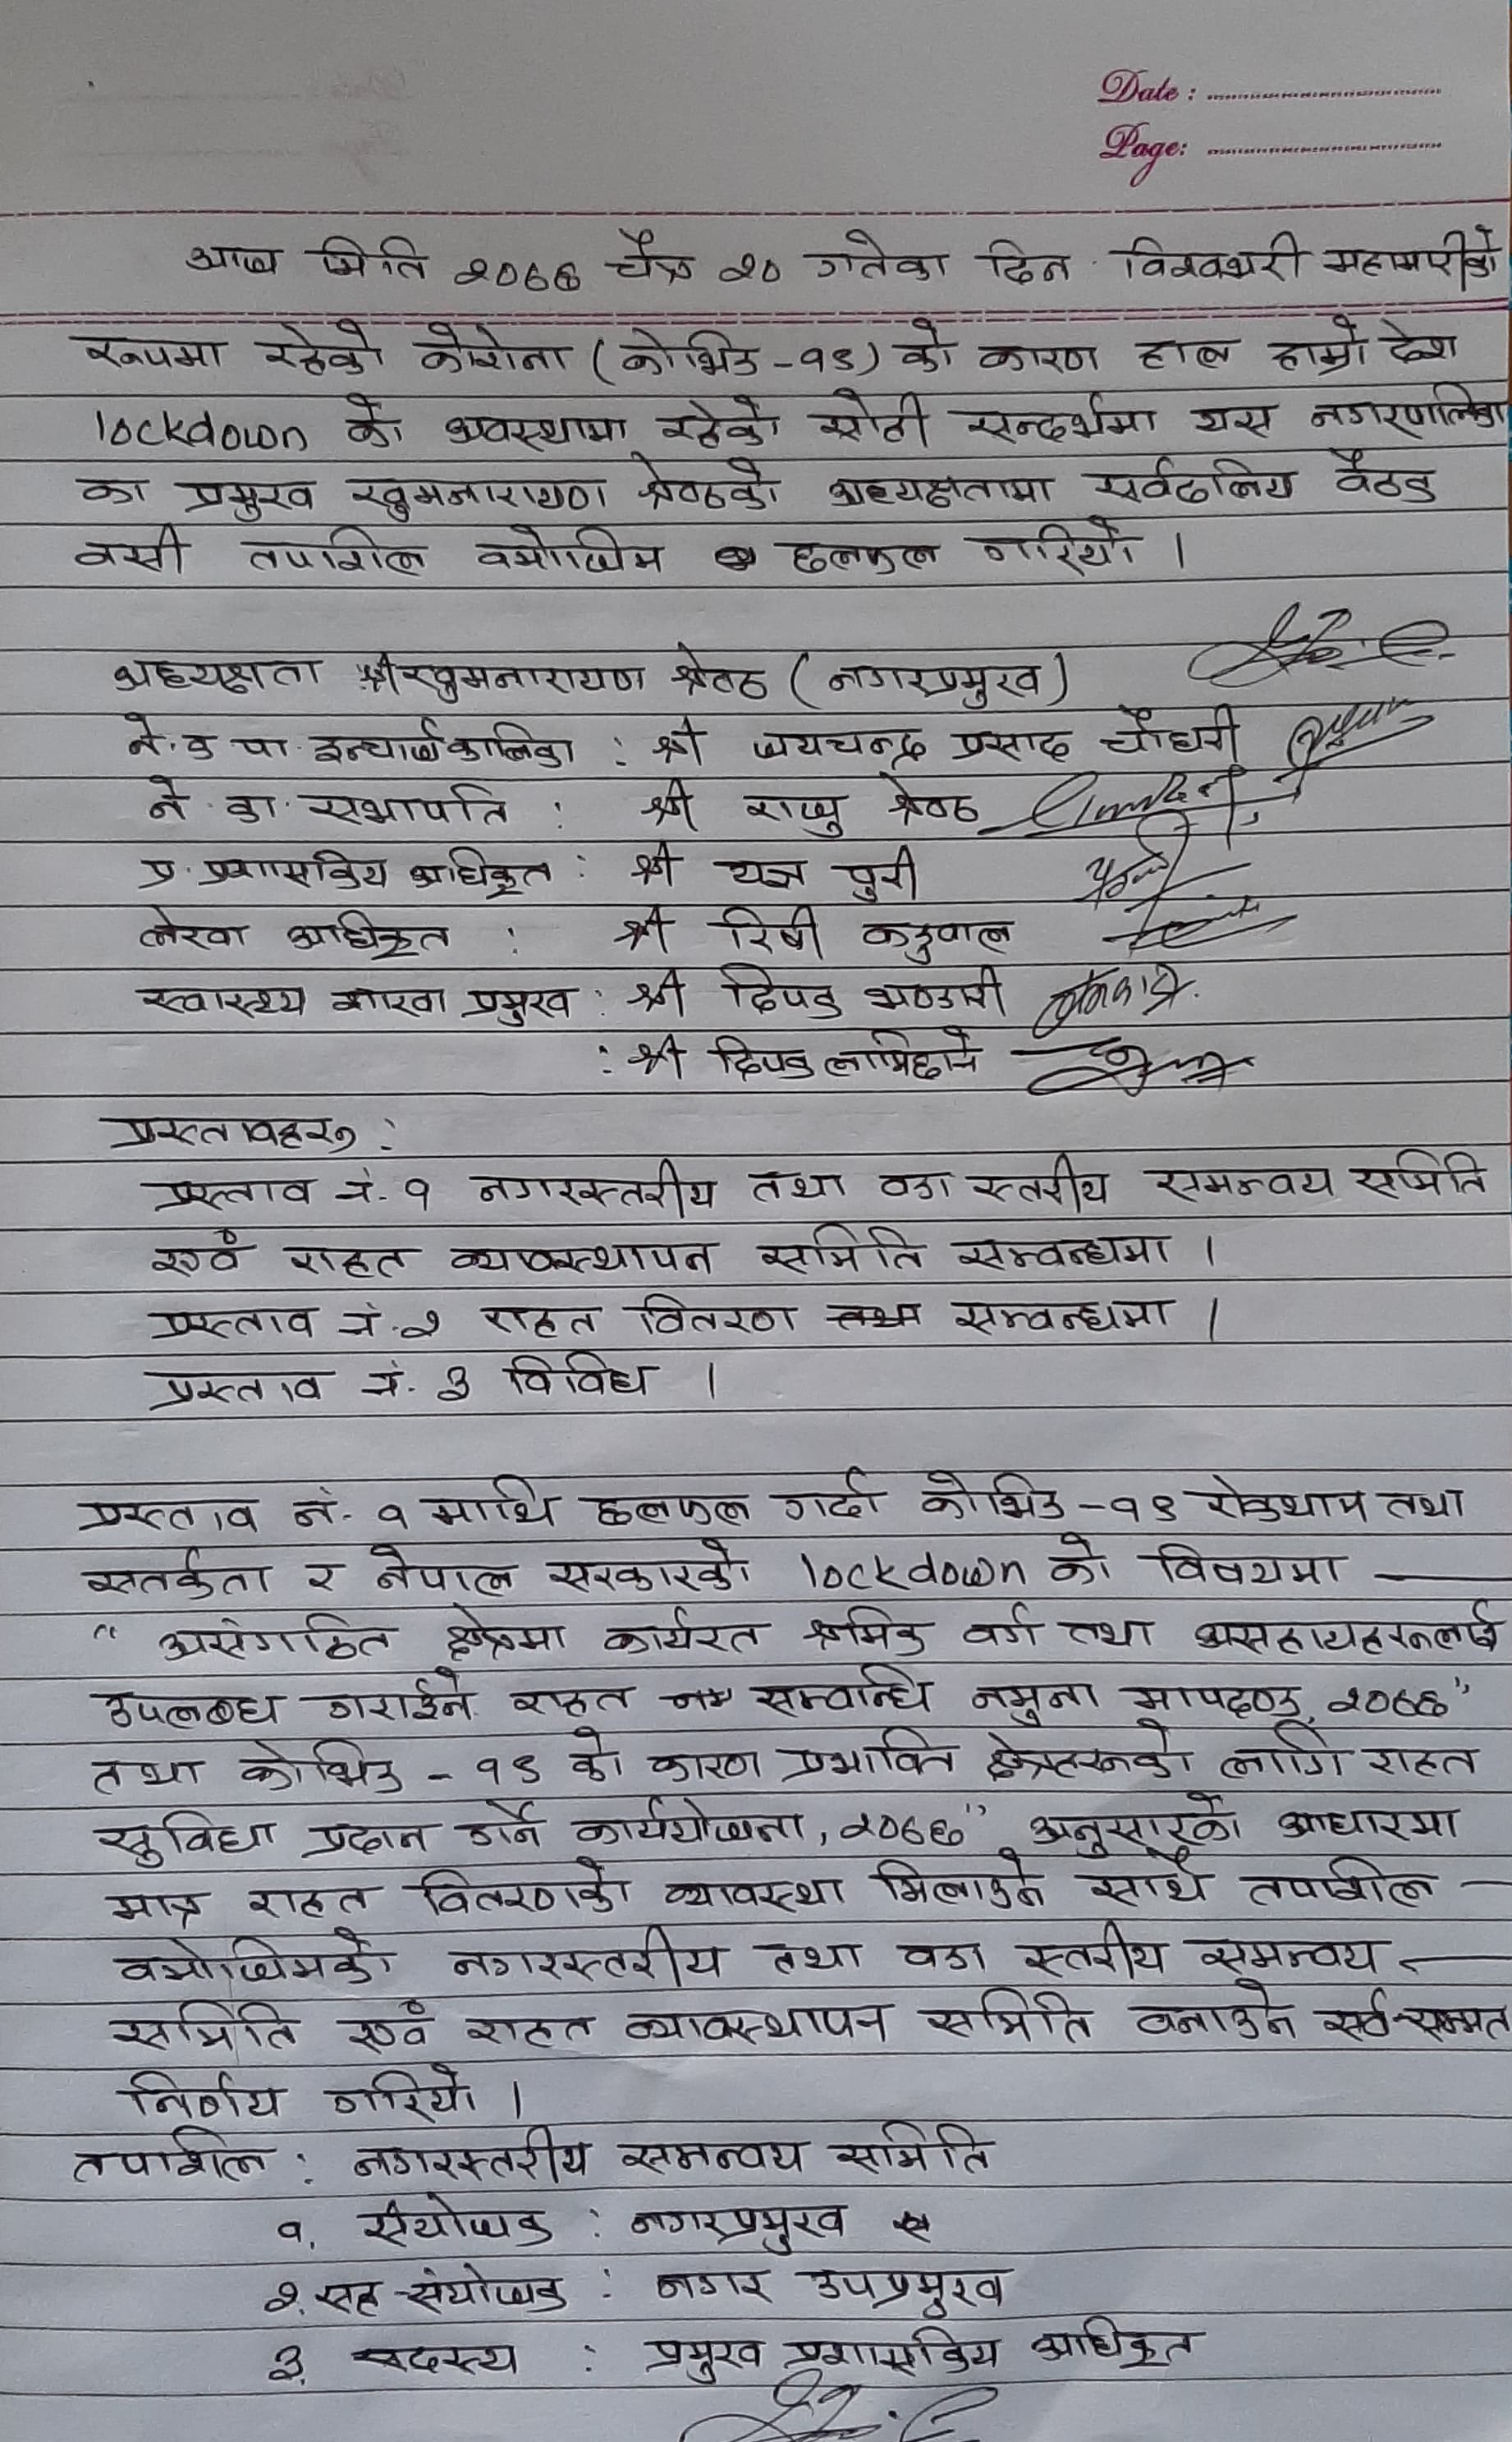 Date :
Page:
आज मिति २०७६ चैत्र २० गतेका दिन विश्वभरी महामारीको
रूपमा रहेको कोरोना (कोभिड-१९) को कारण हाल हाम्रो देश
lockdown को अवस्थामा रहेको सोही सन्दर्भमा यस नगरपालिका
का प्रमुख खुमनारायण श्रेष्ठको अध्यक्षतामा सर्वदलिय बैठक
बसी तपशिल बमोजिम छलफल गरियो ।
अध्यक्षता श्री खुमनारायण श्रेष्ठ (नगरप्रमुख)
ने.क पा इन्चार्ज कालिका : श्री जयचन्द्र प्रसाद चौधरी
ने. का. सभापति : श्री राजु श्रेष्ठ
प्र. प्रशासकिय अधिकृत : श्री यज्ञ पुरी
लेखा अधिकृत : श्री रिषी कडुवाल
स्वास्थ्य शाखा प्रमुख : श्री दिपक भण्डारी
: श्री दिपक लामिछाने
प्रस्तावहरू :
प्रस्ताव नं. १ नगरस्तरीय तथा वडा स्तरीय समन्वय समिति
एवं राहत व्यावस्थापन समिति सम्बन्धमा ।
प्रस्ताव नं. २ राहत वितरण सम्बन्धमा ।
प्रस्ताव नं. ३ विविध ।
प्रस्ताव नं. १ माथि छलफल गर्दा कोभिड -१९ रोकथाम तथा
सतर्कता र नेपाल सरकारको lockdown को विषयमा —
“ असंगठित क्षेत्रमा कार्यरत श्रमिक वर्ग तथा असहायहरूलाई
उपलब्ध गराईने राहत सम्बन्धि नमुना मापदण्ड, २०७६”
तथा कोभिड - १९ को कारण प्रभावित क्षेत्रहरूको लागि राहत
सुविधा प्रदान गर्ने कार्ययोजना, २०७६” अनुसारको आधारमा
मात्र राहत वितरणको व्यावस्था मिलाउने साथै तपशील —
बमोजिमको नगरस्तरीय तथा वडा स्तरीय समन्वय —
समिति एवं राहत व्यावस्थापन समिति बनाउने सर्व-सम्मत
निर्णय गरियो ।
तपशिल : नगरस्तरीय समन्वय समिति
१. संयोजक : नगरप्रमुख
२. सह-संयोजक : नगर उपप्रमुख
३. सदस्य : प्रमुख प्रशासकिय अधिकृत